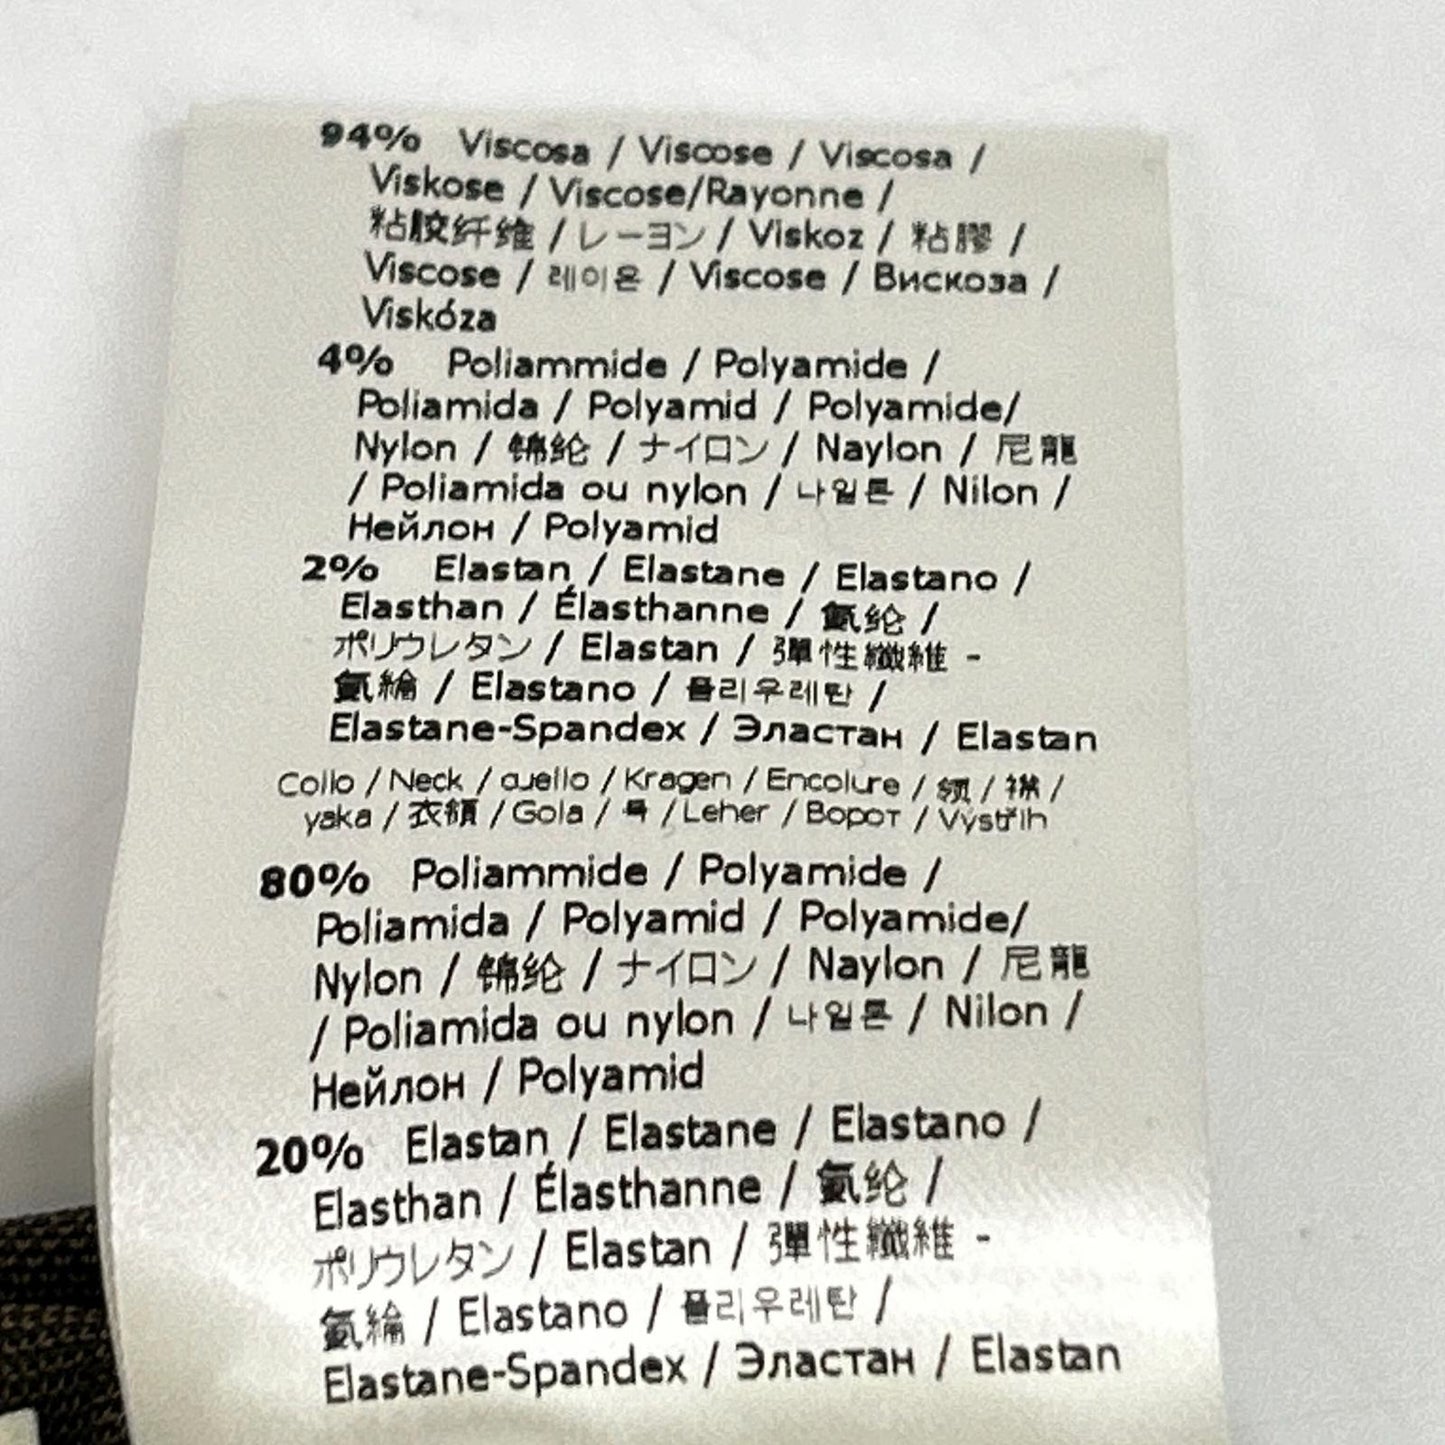 94% Viscosa / Viscose / Viscosa /
Viskose / Viscose/Rayonne /
粘胶纤维 / レーヨン / Viskoz / 粘膠 /
Viscose / 레이온 / Viscose / Вискоза /
Viskóza
4% Poliammide / Polyamide /
Poliamida / Polyamid / Polyamide/
Nylon / 锦纶 / ナイロン / Naylon / 尼龍
/ Poliamida ou nylon / 나일론 / Nilon /
Нейлон / Polyamid
2% Elastan / Elastane / Elastano /
Elasthan / Élasthanne / 氨纶 /
ポリウレタン / Elastan / 彈性纖維 -
氨綸 / Elastano / 폴리우레탄 /
Elastane-Spandex / Эластан / Elastan
Collo / Neck / cuello / Kragen / Encolure / 领 / 襟 /
yaka / 衣領 / Gola / 목 / Leher / Ворот / Výstřih
80% Poliammide / Polyamide /
Poliamida / Polyamid / Polyamide/
Nylon / 锦纶 / ナイロン / Naylon / 尼龍
/ Poliamida ou nylon / 나일론 / Nilon /
Нейлон / Polyamid
20% Elastan / Elastane / Elastano /
Elasthan / Élasthanne / 氨纶 /
ポリウレタン / Elastan / 彈性纖維 -
氨綸 / Elastano / 폴리우레탄 /
Elastane-Spandex / Эластан / Elastan